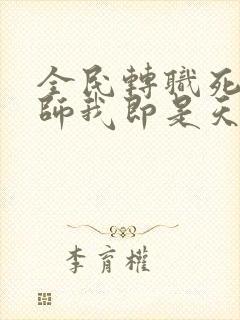 全民轉職死
師我即是天
李育權